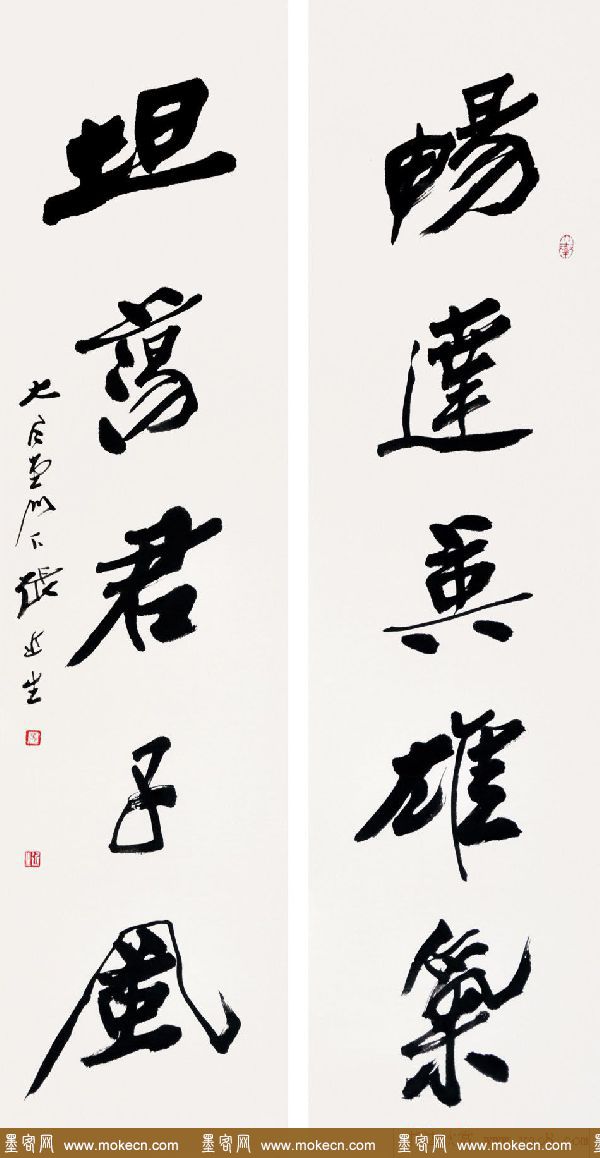 暢達英雄氣
坦蕩君子風
張近生
墨客网 www.mokecn.com 墨客网 www.mokecn.com 墨客网 www.mokecn.com